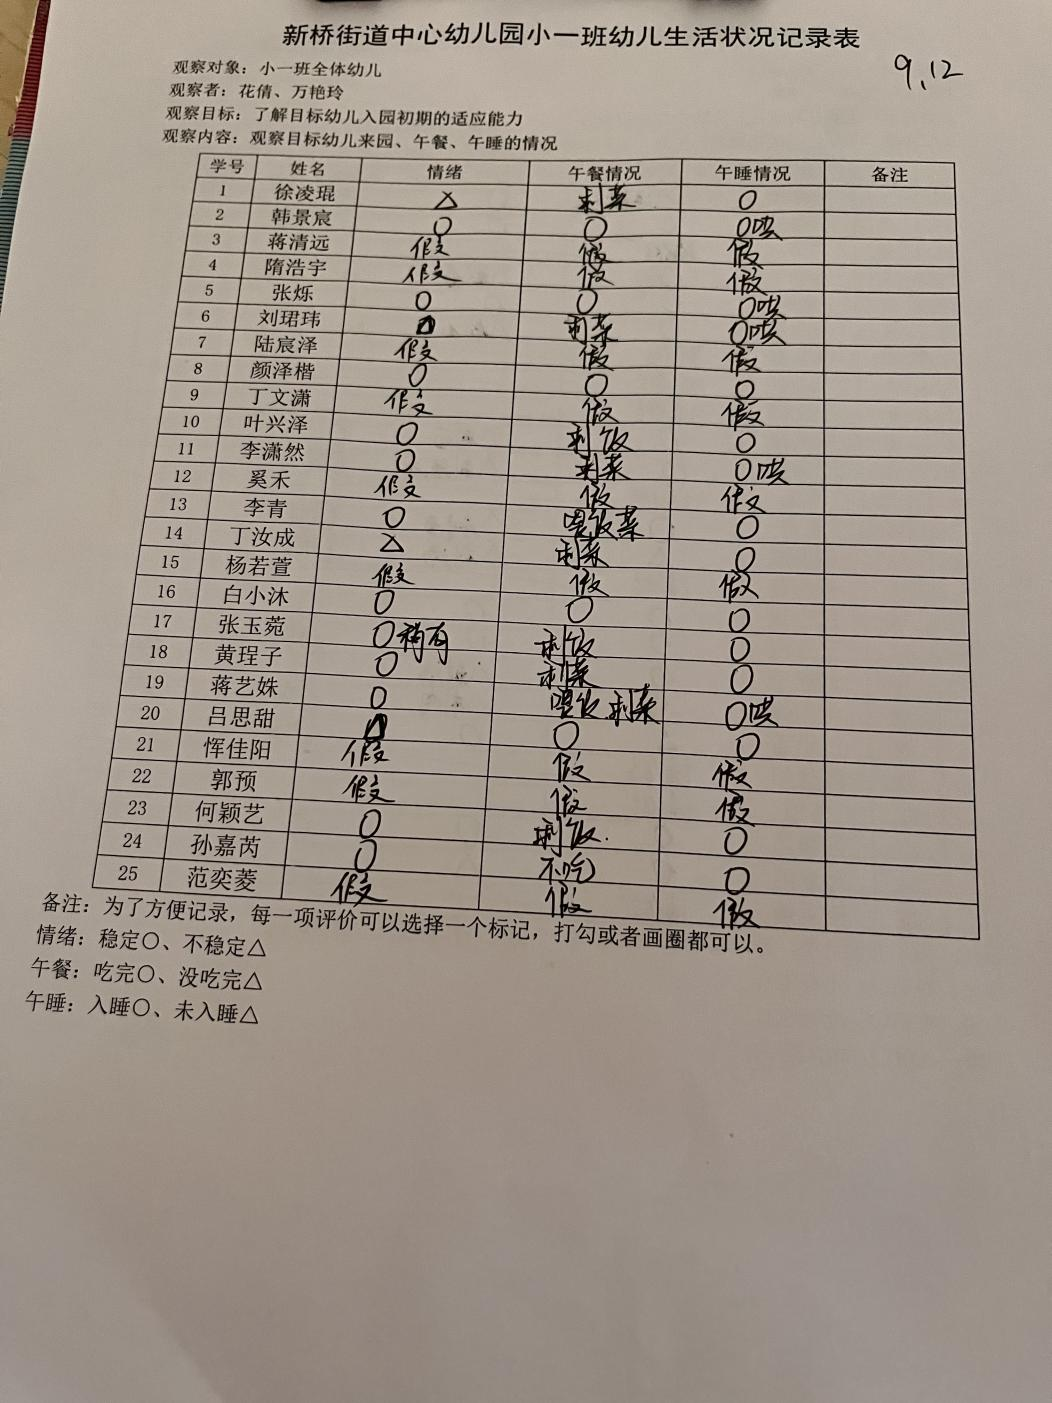 新桥街道中心幼儿园小一班幼儿生活状况记录表
9.12
观察对象：小一班全体幼儿
观察者：花倩、万艳玲
观察目标：了解目标幼儿入园初期的适应能力
观察内容：观察目标幼儿来园、午餐、午睡的情况
学号 姓名 情绪 午餐情况 午睡情况 备注
1 徐凌琨 △ 剩菜 ○
2 韩景宸 ○ ○ ○哄
3 蒋清远 假 假 假
4 隋浩宇 假 假 假
5 张烁 ○ ○ ○哄
6 刘珺玮 剩菜 ○哄
7 陆宸泽 假 假 假
8 颜泽楷 ○ ○ ○
9 丁文潇 假 假 假
10 叶兴泽 ○ 剩饭 ○
11 李潇然 ○ 剩菜 ○哄
12 奚禾 假 假 假
13 李青 ○ 喂饭菜 ○
14 丁汝成 △ 剩菜 ○
15 杨若萱 假 假 假
16 白小沐 ○ ○ ○
17 张玉菀 ○稍有 剩饭 ○
18 黄珵子 ○ 剩菜 ○
19 蒋艺姝 ○ 喂饭.剩菜 ○哄
20 吕思甜 ○ ○
21 恽佳阳 假 假 假
22 郭预 假 假 假
23 何颖艺 ○ 剩饭. ○
24 孙嘉芮 ○ 不吃 ○
25 范奕菱 假 假 假
备注：为了方便记录，每一项评价可以选择一个标记，打勾或者画圈都可以。
情绪：稳定○、不稳定△
午餐：吃完○、没吃完△
午睡：入睡○、未入睡△